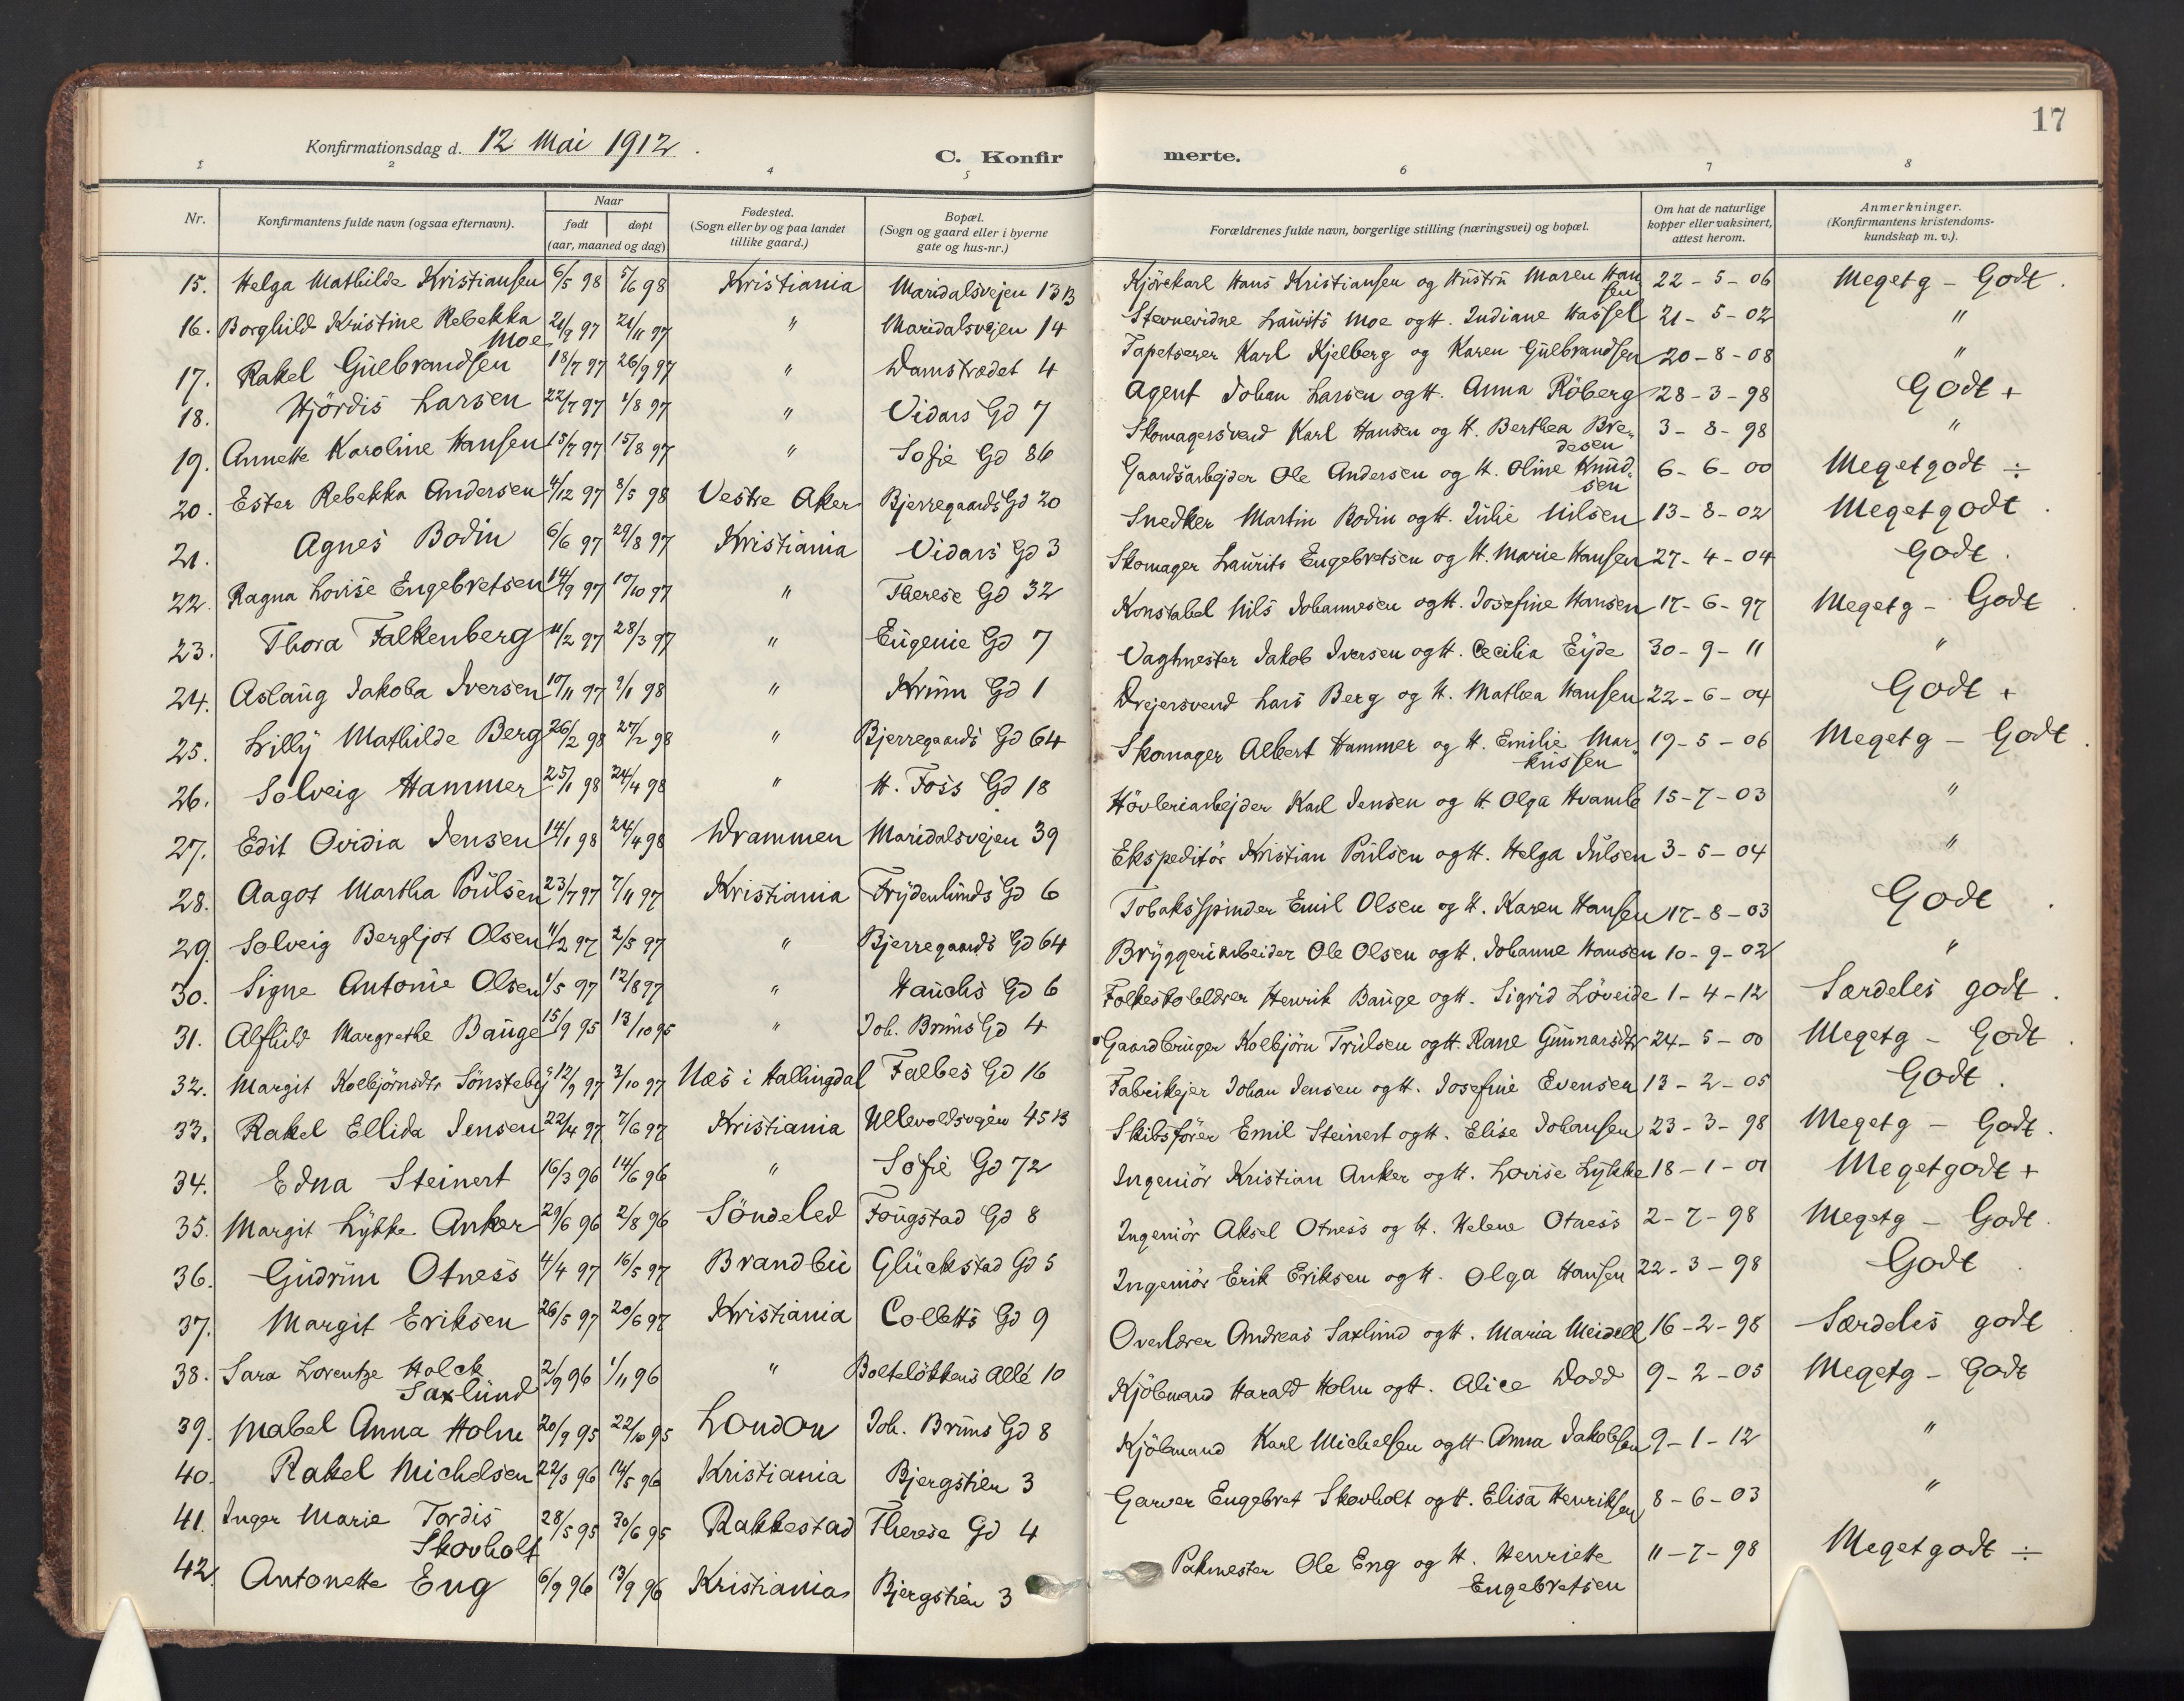 17
Konfirmationsdag d. 12 Mai 1912. C. Konfir merte.
1 2 4 5 6 7 8
Nr. Konfirmantens fulde navn (ogsaa efternavn). Naar født døpt (aar, maaned og dag) Fødested. (Sogn eller by og paa landet tillike gaard.) Bopæl. (Sogn og gaard eller i byerne gate og hus-nr.) Forældrenes fulde navn, borgerlige stilling (næringsvei) og bopæl. Om hat de naturlige kopper eller vaksinert, attest herom. Anmerkninger. (Konfirmantens kristendoms-kundskap m. v.).
15. Helga Mathilde Kristiansen 6/5 98 5/6 98 Kristiania Maridalsvejen 13B Kjörekarl Hans Kristiansen og Hustru Maren Hansen 22-5-06 Megetg - Godt.
16. Borghild Kristine Rebekka Moe 21/9 97 21/11 97 " Maridalsvejen 14 Stevnevidne Laurits Moe og H. Indiane Hassel 21-5-02 "
17. Rakel Gulbrandsen 18/7 97 26/9 97 " Damstrædet 4 Tapetserer Karl Kjelberg og Karen Gulbrandsen 20-8-08 "
18. Hjördis Larsen 22/7 97 1/8 97 " Vidars Gd 7 Agent Johan Larsen og H. Anna Röberg 28-3-98 Godt +
19. Annette Karoline Hansen 15/7 97 15/8 97 " Sofie Gd 86 Skomagersvend Karl Hansen og H. Berthea Bredesen 3-8-98 "
20. Ester Rebekka Andersen 4/12 97 8/5 98 Vestre Aker Bjerregaards Gd 20 Gaardsarbejder Ole Andersen og H. Oline Knudsen 6-6-00 Megetgodt ÷
21. Agnes Bodin 6/6 97 29/8 97 Kristiania Vidars Gd 3 Snedker Martin Bodin og H. Julie Nilsen 13-8-02 Megetgodt.
22. Ragna Lovise Engebretsen 14/9 97 10/10 97 " Therese Gd 32 Skomager Laurits Engebretsen og H. Marie Hansen 27-4-04 Godt.
23. Thora Falkenberg 11/2 97 28/3 97 " Eugenie Gd 7 Konstabel Nils Johannesen og H. Josefine Hansen 17-6-97 Megetg - Godt.
24. Aslaug Jakoba Iversen 10/11 97 9/1 98 " Krum Gd 1 Vagtmester Jakob Iversen og H. Cecilia Eyde 30-9-11 "
25. Lilly Mathilde Berg 26/2 98 27/2 98 " Bjerregaards Gd 64 Drejersvend Lars Berg og H. Mathea Hansen 22-6-04 Godt +
26. Solveig Hammer 25/1 98 24/4 98 " H. Foss Gd 18 Skomager Albert Hammer og H. Emilie Markussen 19-5-06 Megetg - Godt.
27. Edit Ovidia Jensen 14/1 98 24/4 98 Drammen Maridalsvejen 39 Hövleriarbejder Karl Jensen og H Olga Hvamb 15-7-03 "
28. Aagot Martha Poulsen 23/7 97 7/11 97 Kristiania Frydenlunds Gd 6 Ekspeditör Kristian Poulsen og H. Helga Julsen 3-5-04 "
29. Solveig Bergljot Olsen 11/2 97 2/5 97 " Bjerregaards Gd 64 Tobaksspinder Emil Olsen og H. Karen Hansen 17-8-03 Godt.
30. Signe Antonie Olsen 1/5 97 12/8 97 " Hauchs Gd 6 Bryggeriarbeider Ole Olsen og H. Johanne Hansen 10-9-02 "
31. Alfhild Margrethe Bauge 15/9 95 13/10 95 " Joh. Bruns Gd 4 Folkeskolelærer Henrik Bauge og H. Sigrid Löveide 1-4-12 Særdeles godt.
32. Margit Kolbjörnsdtr Sönsteby 12/9 97 3/10 97 Næs i Hallingdal Falbes Gd 16 Gaardbruger Kolbjörn Trulsen og H. Rane Gunnarsdtr 24-5-00 Megetg - Godt
33. Rakel Ellida Jensen 22/4 97 7/6 97 Kristiania Ullevoldsvejen 45B Fabrikejer Johan Jensen og H. Josefine Evensen 13-2-05 Godt.
34. Edna Steinert 16/3 96 14/6 96 " Sofie Gd 72 Skibsförer Emil Steinert og H. Elise Johansen 23-3-98 Megetg - Godt.
35. Margit Lykke Anker 29/6 96 2/8 96 Söndeled Fougstad Gd 8 Ingeniör Kristian Anker og H. Lovise Lykke 18-1-01 Megetgodt +
36. Gudrun Otness 4/4 97 16/5 97 Brandbu Glückstad Gd 5 Ingeniör Aksel Otness og H. Helene Otness 2-7-98 Megetg - Godt.
37. Margit Eriksen 26/5 97 20/6 97 Kristiania Colletts Gd 9 Ingeniör Erik Eriksen og H. Olga Hansen 22-3-98 Godt.
38. Sara Lorentze Holck Saxlund 2/9 96 1/11 96 " Bolteløkkens Allé 10 Overlærer Andreas Saxlund og H. Maria Meidell 16-2-98 Særdeles godt
39. Mabel Anna Holm 20/9 95 22/10 95 London Joh. Bruns Gd 8 Kjöbmand Harald Holm og H. Alice Dodd 9-2-05 Megetg - Godt
40. Rakel Michelsen 22/3 96 14/5 96 Kristiania Bjergstien 3 Kjöbmand Karl Michelsen og H Anna Jakobsen 9-1-12 "
41. Inger Marie Tordis Skovholt 28/5 95 30/6 95 Rakkestad Therese Gd 4 Garver Engebret Skovholt og H. Elisa Henriksen 8-6-03 "
42. Antonette Eng 6/9 96 13/9 96 Kristiania Bjergstien 3 Pakmester Ole Eng og H. Henriette Engebretsen 11-7-98 Megetgodt ÷